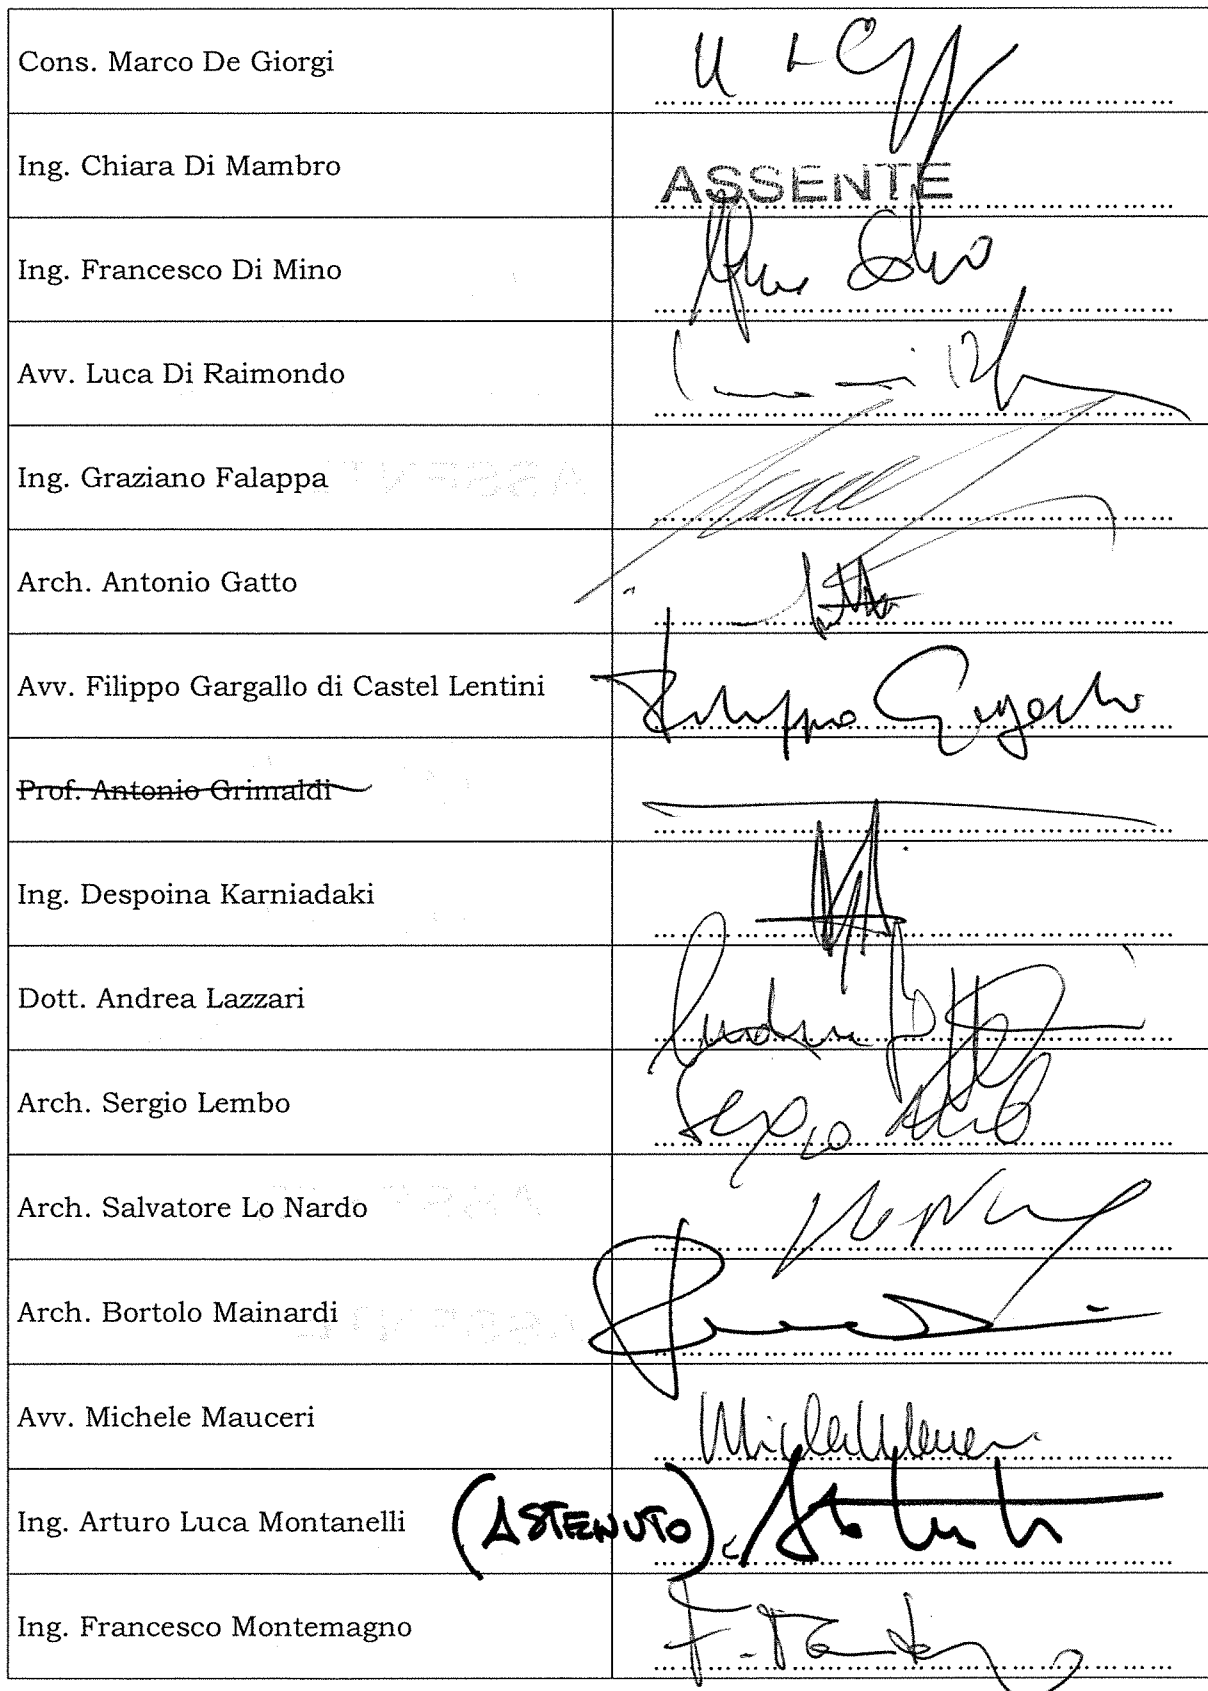 Cons. Marco De Giorgi
Ing. Chiara Di Mambro ASSENTE
Ing. Francesco Di Mino
Avv. Luca Di Raimondo
Ing. Graziano Falappa
Arch. Antonio Gatto
Avv. Filippo Gargallo di Castel Lentini Filippo Gargallo
Prof. Antonio Grimaldi
Ing. Despoina Karniadaki
Dott. Andrea Lazzari
Arch. Sergio Lembo Sergio
Arch. Salvatore Lo Nardo
Arch. Bortolo Mainardi
Avv. Michele Mauceri
Ing. Arturo Luca Montanelli (ASTENUTO)
Ing. Francesco Montemagno